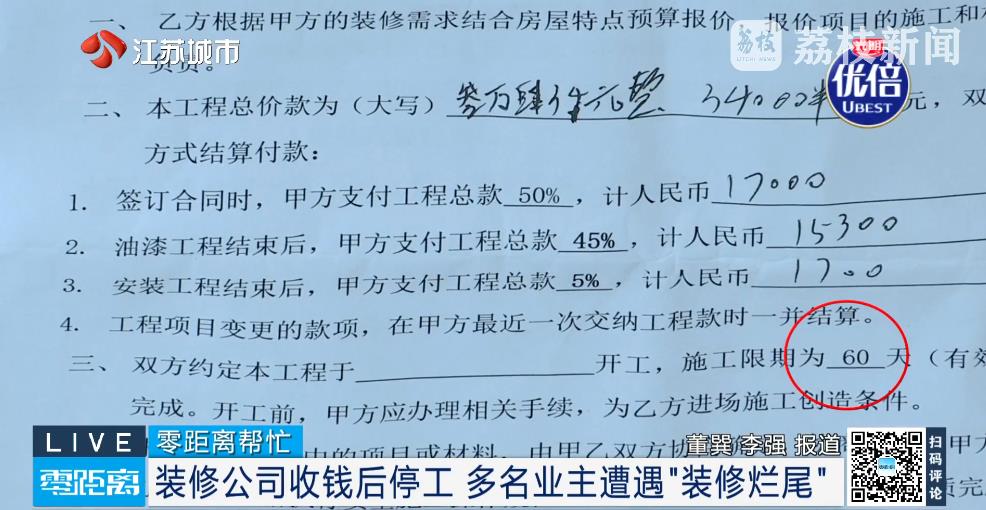 一、乙方根据甲方的装修需求结合房屋特点预算报价，报价项目的施工和
江苏城市
荔枝
LITCHI NEWS
荔枝新闻
负责。
二、本工程总价款为（大写）叁万肆仟元整、34000 元，双
优倍
UBEST
方式结算付款：
1. 签订合同时，甲方支付工程总款 50%，计人民币 17000
2. 油漆工程结束后，甲方支付工程总款 45%，计人民币 15300
3. 安装工程结束后，甲方支付工程总款 5%，计人民币 1700
4. 工程项目变更的款项，在甲方最近一次交纳工程款时一并结算。
三、双方约定本工程于 开工，施工限期为 60 天（有效
完成。开工前，甲方应办理相关手续，为乙方进场施工创造条件。
中的项目或材料，由甲乙双方协
LIVE 零距离帮忙
董巽 李强 报道
零距离
装修公司收钱后停工 多名业主遭遇"装修烂尾"
扫码评论